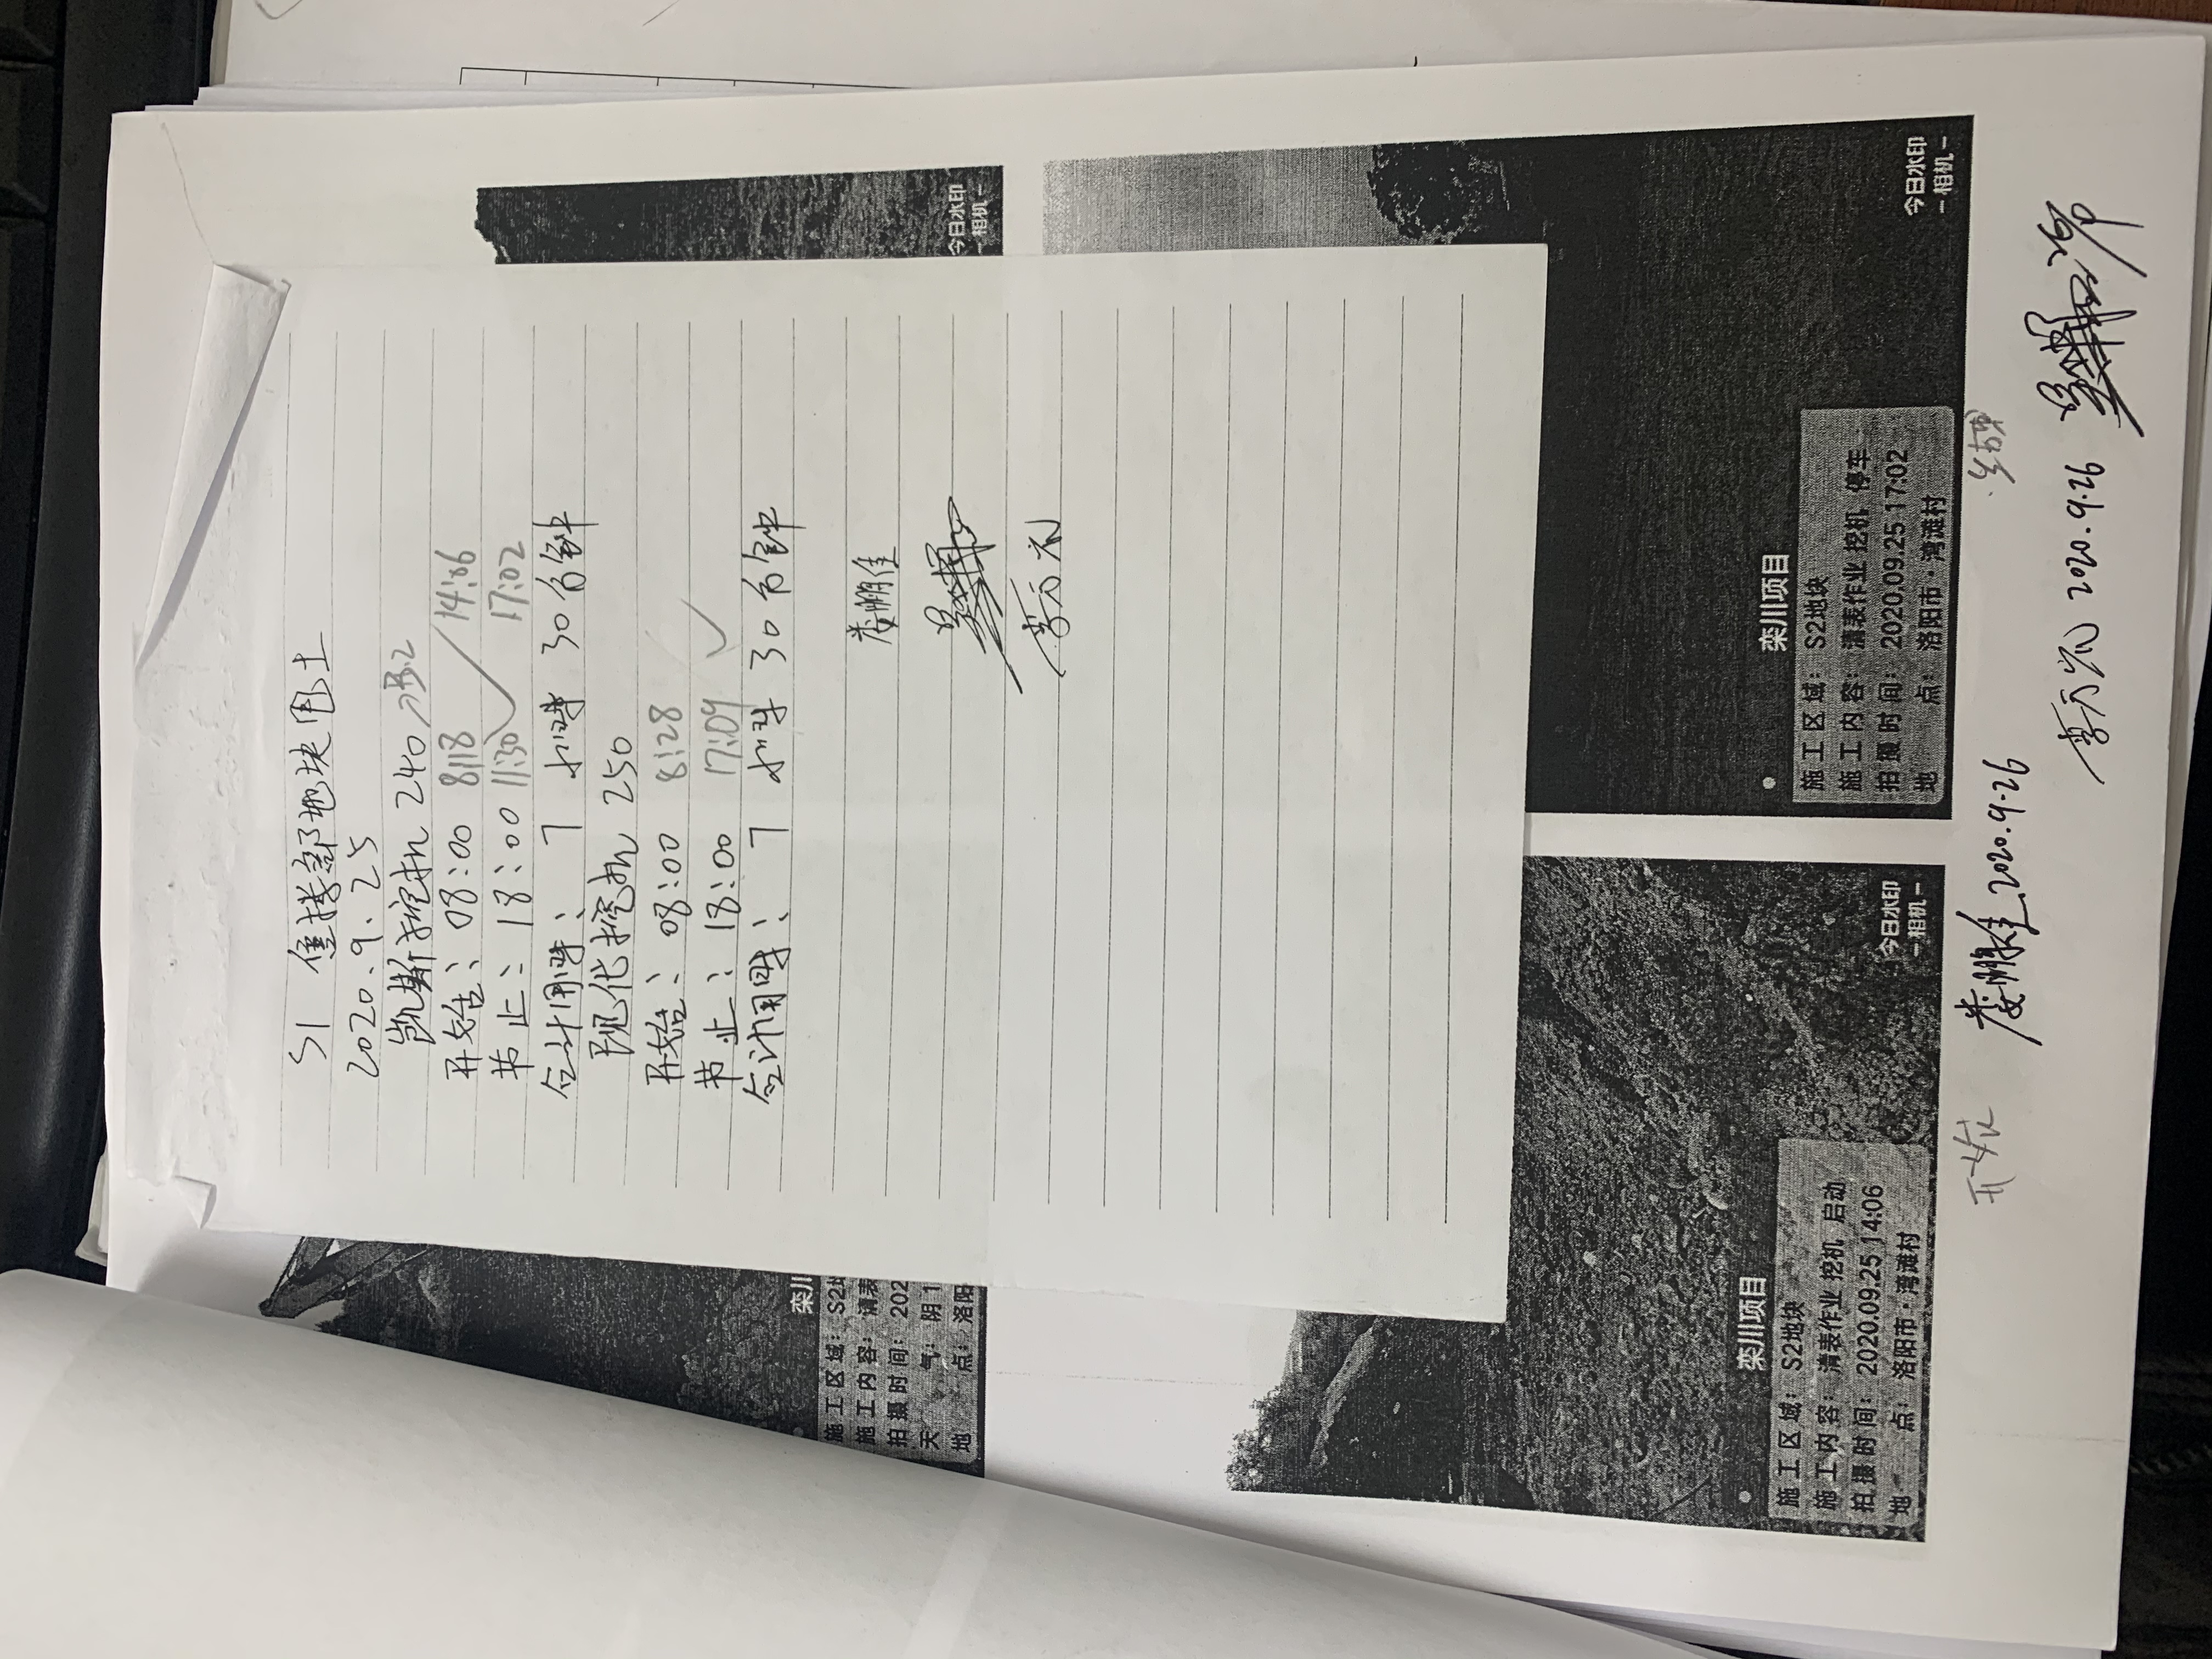 S1 售楼部地块甩土
2020.9.25
凯斯挖机 240
开始：08:00 8:18 14:06
节止：18:00 11:30 17:02
合计用时：7小时30分钟
现代挖机 250
开始：08:00 8:28
节止：18:00 17:09
合计用时：7小时30分钟
娄鹏佳
今日水印
-相机-
今日水印
-相机-
栾川项目
施工区域：S2地块
施工内容：清表作业 挖机 停车
拍摄时间：2020.09.25 17:02
地点：洛阳市·湾滩村
栾川
施工区域：S2地
施工内容：清表
拍摄时间：202
天气：阴 1
地点：洛阳
栾川项目
施工区域：S2地块
施工内容：清表作业 挖机 启动
拍摄时间：2020.09.25 14:06
地点：洛阳市·湾滩村
今日水印
-相机-
开始
娄鹏佳 2020.9.26
2020.9.26